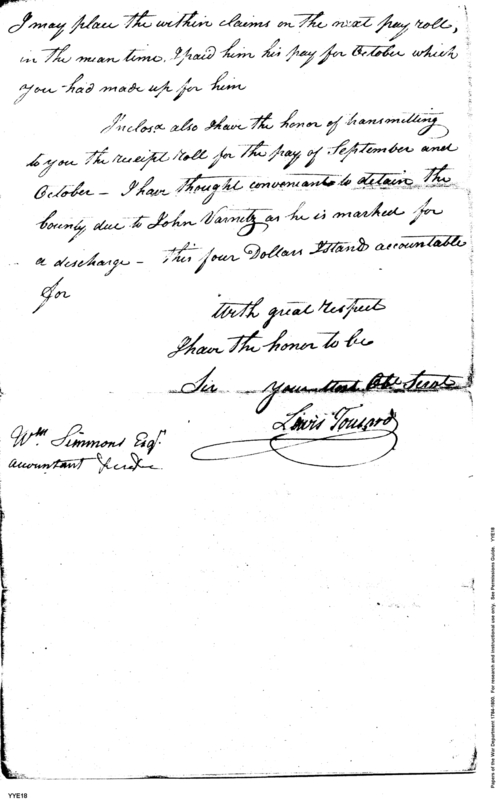 I may place the within claims on the next pay roll,
in the mean time. I paid him his pay for October which
you had made up for him
Inclosd also I have the honor of transmitting
to you the receipt roll for the pay of September and
October – I have thought conveniant to detain the
bounty due to John Varnetz as he is marked for
a discharge – this four Dollars I stand accountable
for
With great respect
I have the honor to be
Sir your most Obt Servt
Lewis Tousard
Wm Simmons Esqr.
accountant
Papers of the War Department 1784-1800. For research and instructional use only. See Permissions Guide. YYE18
YYE18